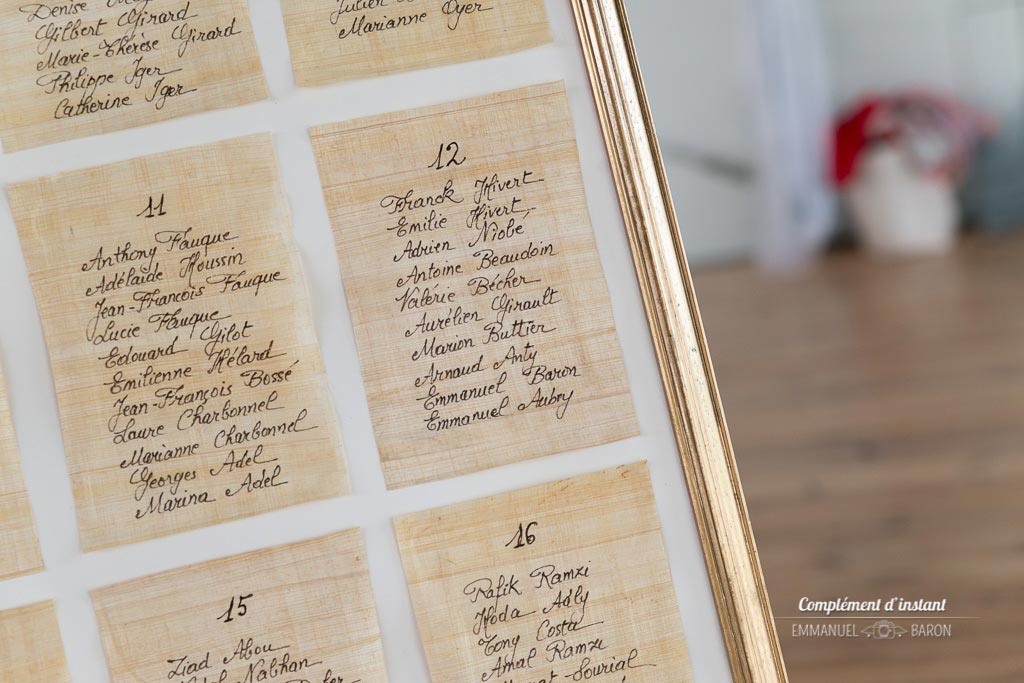 Denise
Gilbert Girard
Marie-Thérèse Girard
Philippe Iger
Catherine Iger
Julien
Marianne Oyer
11
Anthony Fauque
Adélaïde Houssin
Jean-François Fauque
Lucie Fauque
Edouard Gilot
Emilienne Hélard
Jean-François Bossé
Laure Charbonnel
Marianne Charbonnel
Georges Adel
Marina Adel
12
Franck Hivert
Emilie Hivert
Adrien Niobé
Antoine Beaudoin
Valérie Bécher
Aurélien Girault
Marion Buttier
Arnaud Anty
Emmanuel Baron
Emmanuel Aubry
15
Ziad Abou
Nabhan
16
Rafik Ramzi
Hoda Adly
Tony Costa
Amal Ramzi
Sourial
Complément d'instant
EMMANUEL BARON